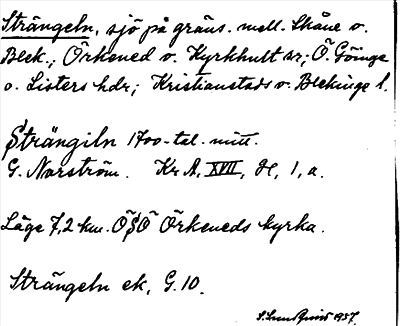 Strängeln, sjö på gräns. mell. Skåne o.
Blek.; Örkened o. Kyrkhult sr; Ö. Göinge
o. Listers hdr; Kristianstads o. Blekinge l.
Strängiln 1700-tal. mitt.
G. Norström. Kr A, XVII, H, 1, a.
Läge 7,2 km. ÖSÖ Örkeneds kyrka.
Strängeln ek, G. 10.
1937.